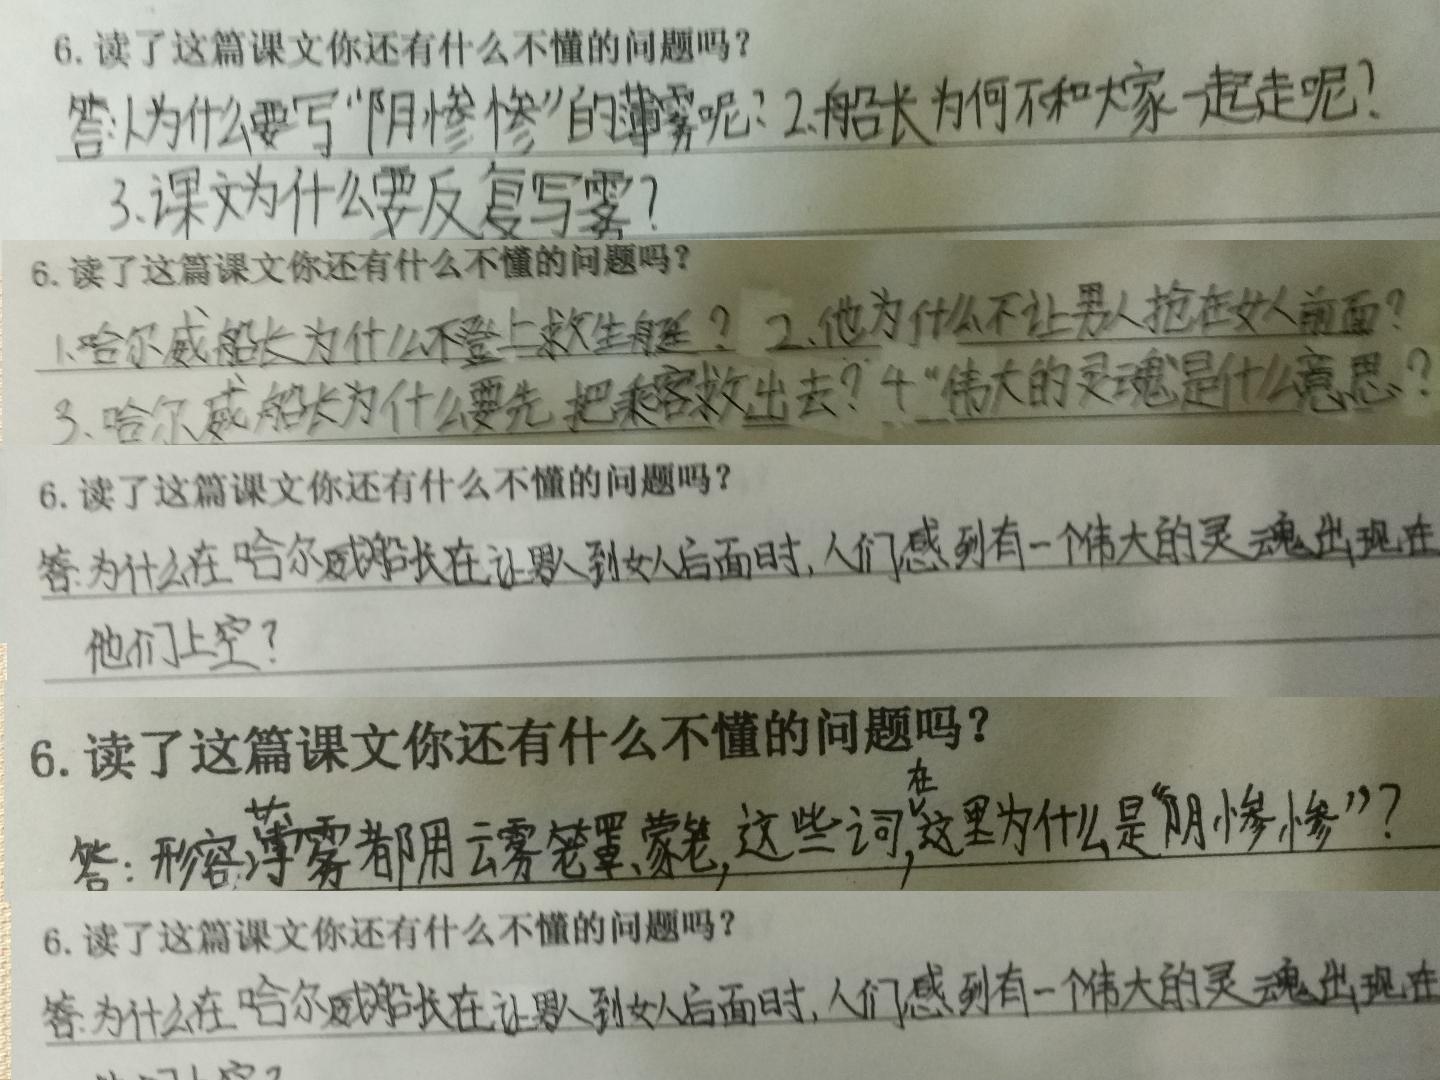 6. 读了这篇课文你还有什么不懂的问题吗？
答:1.为什么要写“阴惨惨”的薄雾呢？2.船长为何不和大家一起走呢？
3.课文为什么要反复写雾？
6. 读了这篇课文你还有什么不懂的问题吗？
1.哈尔威船长为什么不登上救生艇？ 2.他为什么不让男人抢在女人前面？
3.哈尔威船长为什么要先把乘客救出去？4.“伟大的灵魂”是什么意思？
6. 读了这篇课文你还有什么不懂的问题吗？
答:为什么在哈尔威船长在让男人到女人后面时，人们感到有一个伟大的灵魂出现在
他们上空？
6. 读了这篇课文你还有什么不懂的问题吗？
答：形容薄雾都用云雾笼罩、蒙笼，这些词，在这里为什么是“阴惨惨”？
6. 读了这篇课文你还有什么不懂的问题吗？
答:为什么在哈尔威船长在让男人到女人后面时，人们感到有一个伟大的灵魂出现在